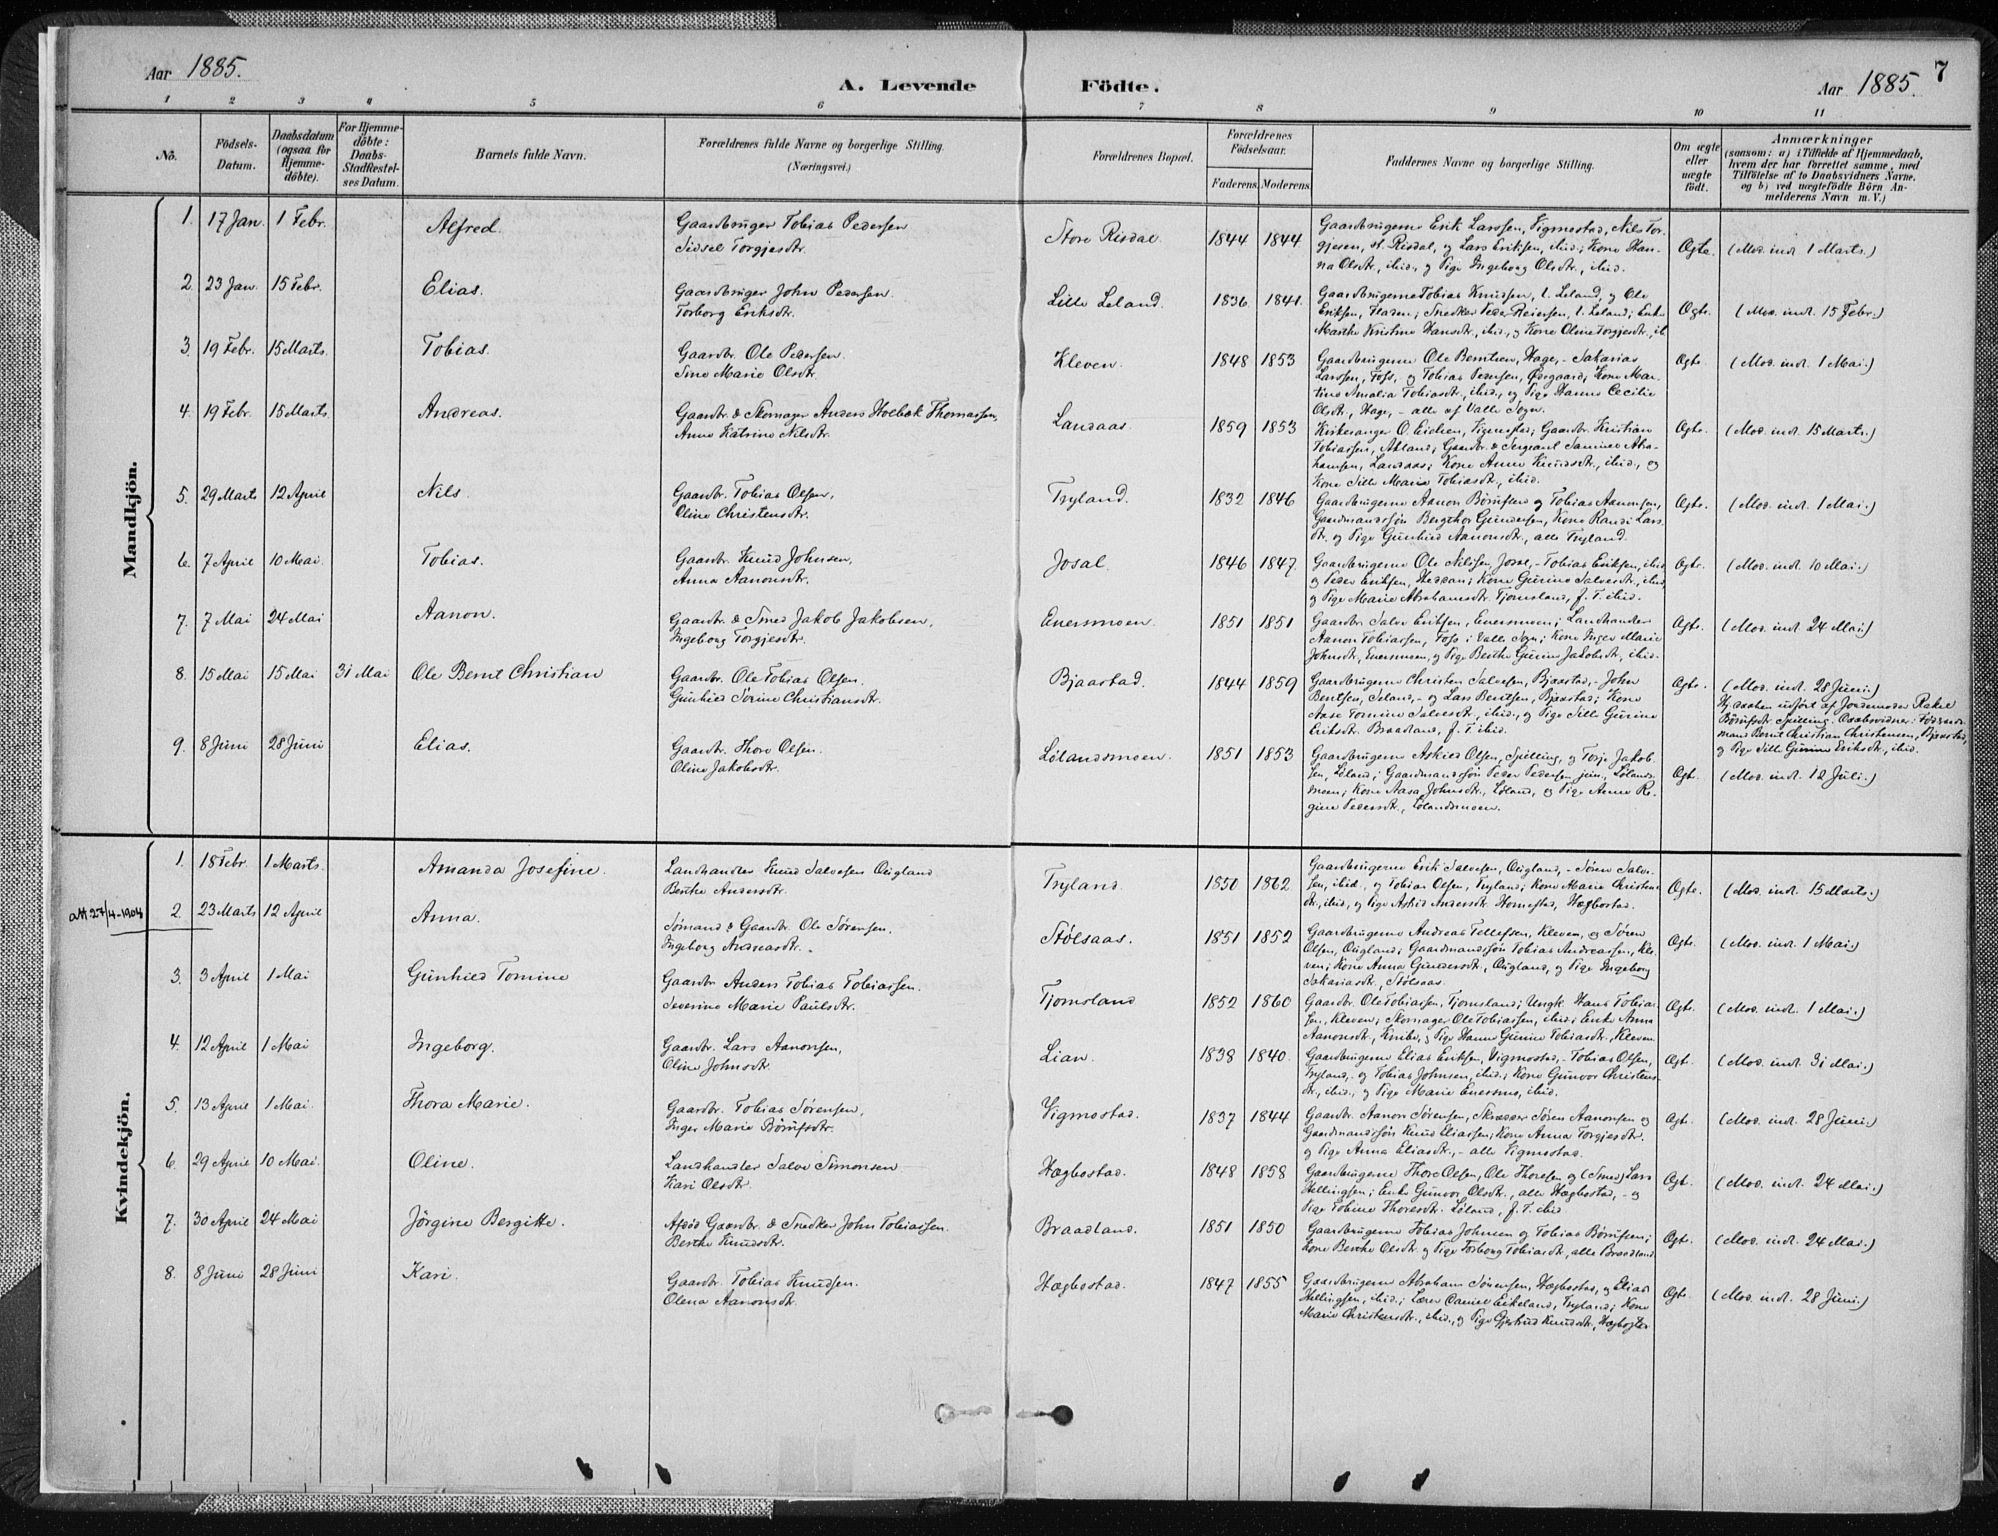 Aar 1885.
A. Levende Födte.
Aar 1885. 7
1 2 3 4 5 6 7 8 9 10 11
No.
Födsels-Datum.
Daabsdatum (ogsaa for Hjemme-döbte).
For Hjemme-döbte: Daabs-Stadfæstel-ses Datum.
Barnets fulde Navn.
Forældrenes fulde Navne og borgerlige Stilling. (Næringsvei.)
Forældrenes Bopæl.
Forældrenes Födselsaar.
Faderens. Moderens.
Faddernes Navne og borgerlige Stilling.
Om ægte eller uægte födt.
Anmærkninger
(saasom: a) i Tilfælde af Hjemmedaab, hvem der har forrettet samme, med Tilföielse af to Daabsvidners Navne, og b) ved uægtefödte Börn Anmelderens Navn m. V.)
Mandkjön.
1. 17 Jan. 1 Febr. Alfred. Gaardbruger Tobias Pedersen
Sidsel Torgjesdtr. Store Risdal. 1844 1844
Gaardbrugerne Erik Larssen, Vigmostad, Nils Tor-
gjesen, st. Risdal, og Lars Eriksen, ibid; Kone Han-
na Olsdtr., ibid., og Pige Ingeborg Olsdtr., ibid.
Ægte. (Mod. ind. 1 Marts.)
2. 23 Jan. 15 Febr. Elias. Gaardbruger John Pedersen.
Torborg Eriksdtr. Lille Leland. 1836 1841.
Gaardbrugerne Tobias Knudsen, l. Leland, og Ole
Eriksen, Fladen; Snedker Peder Reiersen, l. Leland; Enke
Marthe Kristine Hansdtr., ibid., og Kone Oline Torgjesdtr., ib
Ægte. (Mod. indt. 15 Febr.)
3. 19 Febr. 15 Marts Tobias. Gaardbr. Ole Pedersen.
Sine Marie Olsdtr. Kleven. 1848 1853
Gaardbrugerne Ole Berntsen, Hage, - Sakarias
Larssen, Foss, og Tobias Pedersen, Ødegaard; Kone Mar-
tine Amalia Tobiasdtr., ibid., og Pige Hanne Cecilie
Olsdtr., Hage, - alle af Valle Sogn.
Ægte. (Mod. indt. 1 Mai.)
4. 19 Febr. 15 Marts Andreas. Gaardbr. & Skomager Anders Holbæk Thomassen,
Anne Katrine Nilsdtr. Landaas. 1859 1853
Kirkesanger O. Eielsen, Vigmostad; Gaardbr. Kristian
Tobiassen, Akland; Gaardbr. & Sergeant Samuel Abra-
hamsen, Landaas; Kone Anne Knudsdtr., ibid., og
Kone Sille Maria Tobiasdtr., ibid.
Ægte. (Mod. indt. 15 Marts.)
5. 29 Marts 12 April Nils. Gaardbr. Tobias Olsen,
Oline Christensdtr. Tryland. 1832 1846
Gaardbrugerne Aanon Børufsen og Tobias Aanonsen,
Gaardmandssøn Bergthor Gundersen, Kone Randi Lars-
dtr. og Pige Gunhild Aanonsdtr., alle Tryland.
Ægte. (Mod. indt. 1 Mai.)
6. 7 April 10 Mai. Tobias. Gaardbr. Knud Johnsen,
Anna Aanonsdtr. Josal. 1846 1847
Gaardbrugerne Ole Nilssen, Josal, - Tobias Eriksen, ibid.
og Peder Eriksen, Heddan; Kone Gurine Salvesdtr., ibid.,
og Pige Marie Abrahamsdtr. Tjomsland, f. T. ibid.
Ægte. (Mod. indt. 10 Mai.)
7. 7 Mai 24 Mai Aanon. Gaardbr. & Smed Jakob Jakobsen,
Ingeborg Torgjesdtr. Enersmoen. 1851 1851
Gaardbr. Salve Eriksen, Enersmoen; Landhandler
Aanon Tobiassen, Foss i Valle Sogn; Kone Inger Marie
Johnsdtr., Enersmoen, og Pige Berthe Gurine Jakobsdtr., ibid.
Ægte. (Mod. indt. 24 Mai.)
8. 15 Mai 15 Mai 31 Mai Ole Bernt Christian Gaardbr. Ole Tobias Olsen.
Gunhild Sørine Christiansdtr. Bjaastad. 1844 1859
Gaardbrugerne Christen Salvesen, Bjaastad, - John
Berntsen, Leland, - og Lars Berntsen, Bjaastad; Kone
Aase Tomine Salvesdtr., ibid., og Pige Sille Gurine
Eriksdtr. Braadland, f. T. ibid.
Ægte. (Mod. indt. 28 Juni.)
Hj.daaben udført af Jordemoder Rakel
Børufsdtr. Spilling. Daabsvidner: Føderaads-
mand Bernt Christian Christensen, Bjaastad,
og Pige Sille Gurine Eriksdtr., ibid.
9. 8 Juni 28 Juni Elias. Gaardbr. Thore Olsen.
Oline Jakobsdtr. Lølandsmoen. 1851 1853
Gaardbrugerne Askild Olsen, Spilling, og Torje Jakob-
sen, Løland; Gaardmandssøn Peder Pedersen jun., Lølands-
moen; Kone Aasa Johnsdtr., Løland, og Pige Anne Re-
gine Pedersdtr., Lølandsmoen.
Ægte. (Mod. indt. 12 Juli.)
Kvindekjön.
1. 18 Febr. 1 Marts. Amanda Josefine. Landhandler Knud Salvesen Øigland
Berthe Andersdtr. Tryland. 1850 1862
Gaardbrugerne Erik Salvesen, Øigland, - Søren Salve-
sen, ibid., og Tobias Olsen, Tryland; Kone Marie Christens-
dtr., ibid., og Pige Astrid Andersdtr. Homestad, Hægbostad.
Ægte. (Mod. indt. 15 Marts.)
att 27/4-1904
2. 23 Marts 12 April Anna. Sømand & Gaardbr. Ole Sørensen.
Ingeborg Andreasdtr. Stølsaas. 1851 1852
Gaardbrugerne Andreas Tellefsen, Kleven, og Søren
Olsen, Øigland; Gaardmandssøn Tobias Andreassen, Kle-
ven; Kone Anna Gundersdtr., Øigland, og Pige Ingeborg
Sakariasdtr., Stølsaas.
Ægte. (Mod. indt. 1 Mai)
3. 3 April 1 Mai Gunhild Tomine Gaardbr. Anders Tobias Tobiassen.
Severine Marie Paulsdtr. Tjomsland 1852 1860
Gaardbr. Ole Tobiassen, Tjomsland; Ungk. Hans Tobias-
sen, Kleven; Skomager Ole Tobiassen, ibid; Enke Anna
Aanonsdtr., Knibe, og Pige Hanne Gurine Tobiasdtr. Kleven.
Ægte. (Mod. indt. 1 Mai.)
4. 12 April 1 Mai Ingeborg. Gaardbr. Lars Aanonsen,
Oline Johnsdtr. Lian. 1838 1840.
Gaardbrugerne Elias Eriksen, Vigmostad, - Tobias Olsen,
Tryland, - og Tobias Johnsen, ibid; Kone Gunvor Christens-
dtr., ibid., og Pige Marie Enersmo, ibid.
Ægte. (Mod. indt. 31 Mai.)
5. 13 April 1 Mai. Thora Marie. Gaardbr. Tobias Sørensen,
Inger Marie Børufsdtr. Vigmostad. 1837 1844
Gaardbr. Aanon Sørensen, Skrædder Søren Aanonsen og
Gaardmandssøn Knud Eliassen; Kone Anna Torgjesdtr.
og Pige Anna Eliasdtr., - alle Vigmostad.
Ægt. (Mod. indt. 28 Juni.)
6. 29 April 10 Mai. Oline. Landhandler Salve Simonsen
Kari Olsdtr. Hægbostad. 1848 1858
Gaardbrugerne Thore Olsen, Ole Thoresen og (Smed) Lars
Hellingsen; Enke Gunvor Olsdtr., alle Hægbostad, - og
Pige Tobine Thoresdtr. Løland, f. T. ibid.
Ægt. (Mod. indt. 24 Mai.)
7. 30 April 24 Mai Jörgine Bergitte. Afsød Gaardbr. & Snedker John Tobiassen.
Berthe Knudsdtr. Braadland. 1851 1850
Gaardbrugerne Tobias Johnsen og Tobias Børufsen;
Kone Berthe Olsdtr. og Pige Torborg Tobiasdtr., alle Braadland.
Ægt. (Mod. indt. 24 Mai.)
8. 8 Juni 28 Juni Kari. Gaardbr. Tobias Knudsen.
Olena Aanonsdtr. Hægbostad. 1847 1855
Gaardbrugerne Abraham Sørensen, Hægbostad, og Elias
Hellingsen, ibid.; Lærer Daniel Eikeland, Tryland; Kone
Marie Christensdtr., ibid., og Pige Gjertrud Knudsdtr., Hægbostad
Ægt. (Mod. indt. 28 Juni.)